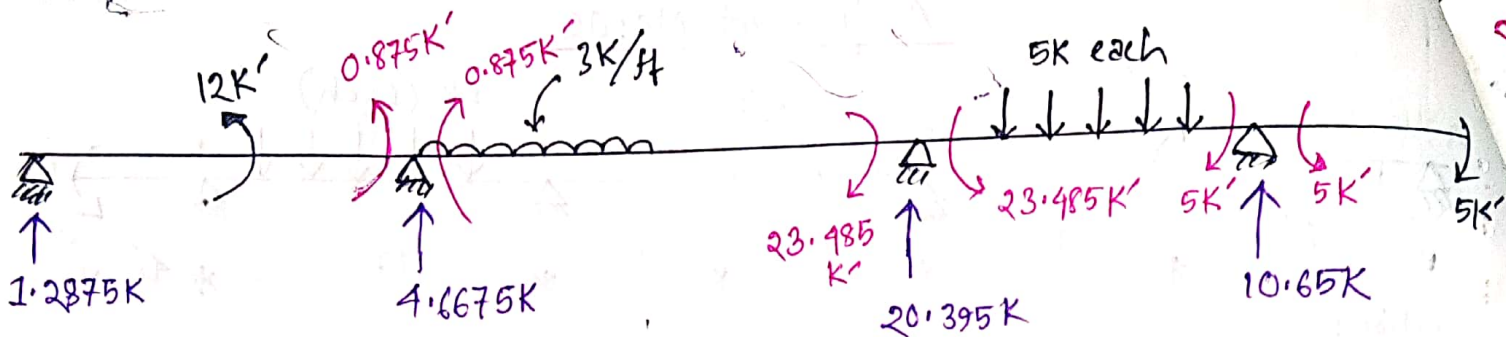 12K′
0.875K′
0.875K′
3K/ft
5K each
23.485
K′
23.485K′
5K′
5K′
5K′
1.2875K
4.6675K
20.395K
10.65K